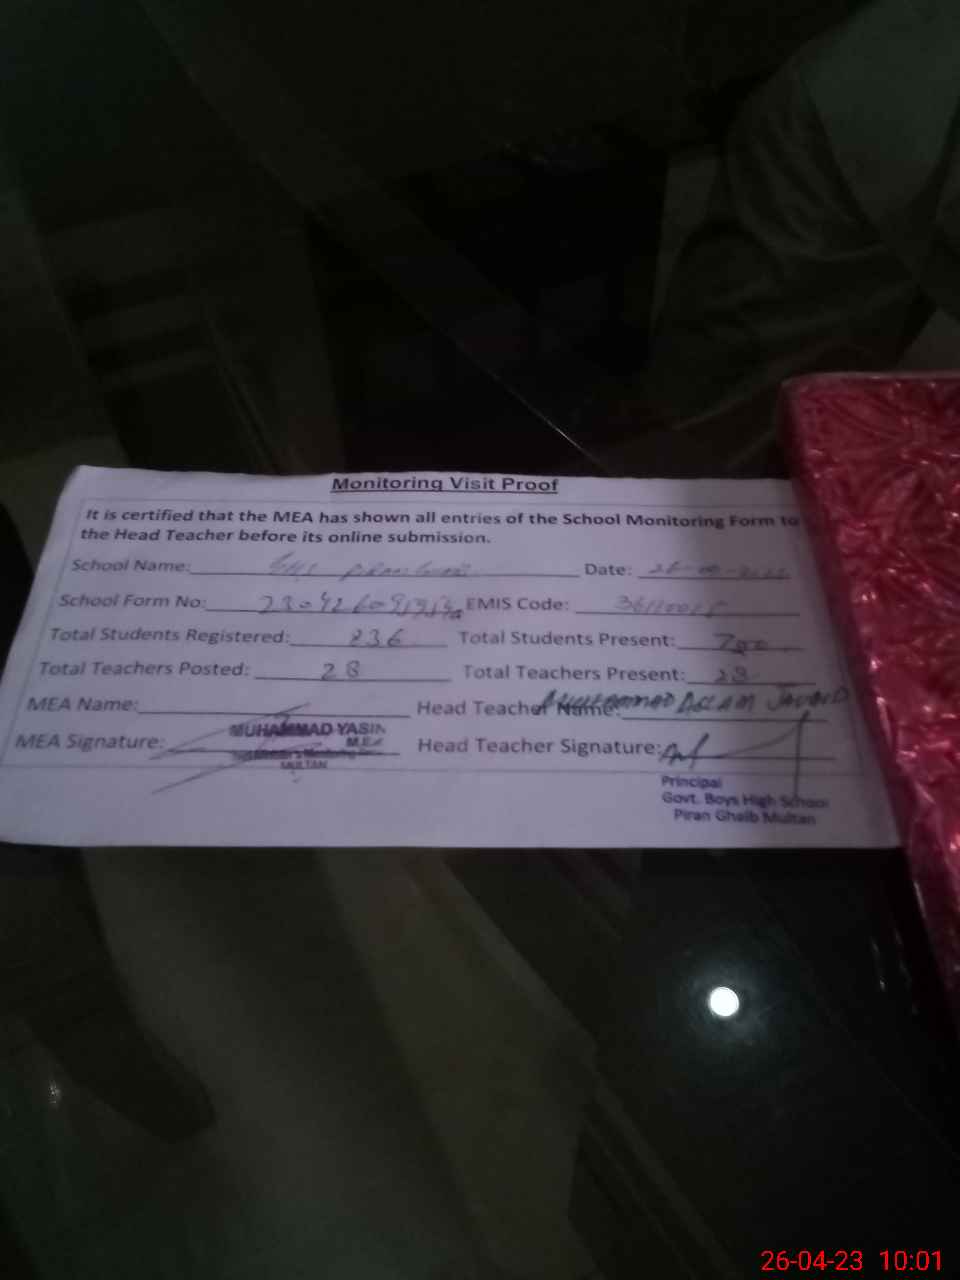 Monitoring Visit Proof
It is certified that the MEA has shown all entries of the School Monitoring Form to
the Head Teacher before its online submission.
School Name: GHS Piran Ghaib Date:
School Form No: EMIS Code:
Total Students Registered: 836 Total Students Present: 700
Total Teachers Posted: 28 Total Teachers Present: 28
MEA Name: Head Teacher Name: MUHAMMAD ASLAM JAVAID
MEA Signature: MUHAMMAD YASIN Head Teacher Signature:
M.E.A
MULTAN
Principal
Govt. Boys High School
Piran Ghaib Multan
26-04-23 10:01